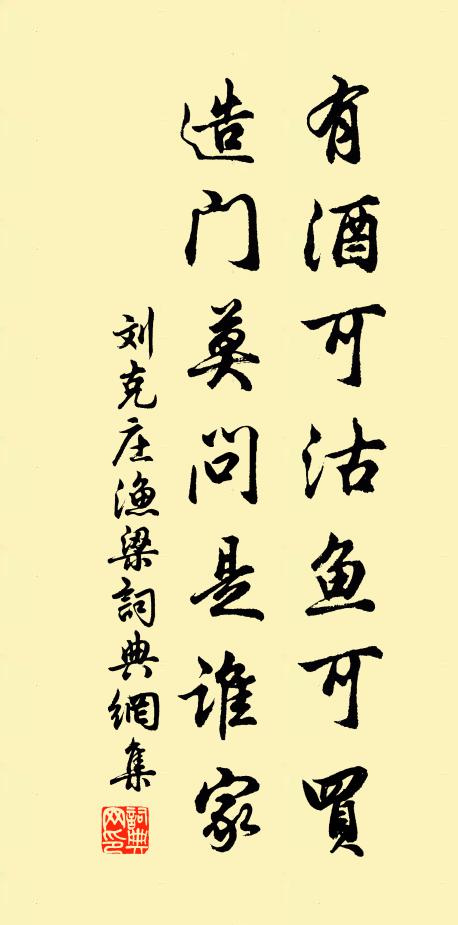 有酒可沽鱼可買
造门莫问是谁家
刘克庄渔梁詞典網集
詞典网印